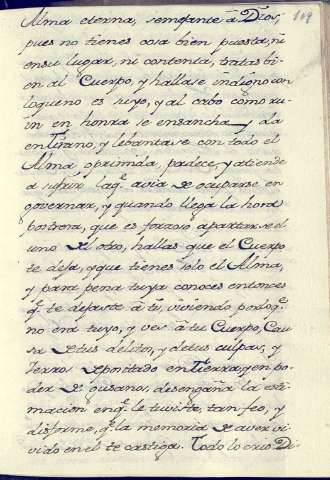 119
Alma eterna, semejante â Dios,
pues no tienes cosa bien puesta, ni
en su lugar, ni contenta, tratas bi-
en al Cuerpo, y hallase indigno con
loque no es suyo, y al cabo como ru-
in en honra se ensancha, y da
en tirano, y lebantase con todo el
Alma oprimida, padece, y atiende
a sufrir laq.^e avia de ocuparse en
governar, y quando llega la hora
postrera, que es forzoso apartarse el
uno del otro, hallas que el Cuerpo
te deja, y que tienes solo el Alma,
y para pena tuya conoces entonces
q.^e te dejaste â ti, viviendo por loq.^e
no era tuyo, y ves â tu Cuerpo, Cau-
sa de tus delitos, y de tus culpas, y
Yerros depositado en tierra, y en po-
der de gusanos, desengaña la esti-
macion en q.^e le tuviste, tan feo, y
disforme, q.^e la memoria de aver vi-
vido en el te castiga. Todo lo crio Di-